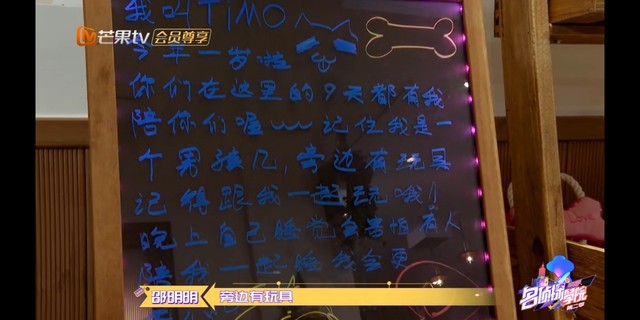 我叫TIMO
芒果tv 会员尊享
今年一岁啦
你们在这里的9天都有我
陪你们喔 记住我是一
个男孩儿,旁边有玩具
记得跟我一起玩哦!
晚上自己睡觉会害怕有人
陪我一起睡我会更
邵明明 旁边有玩具
名侦探学院